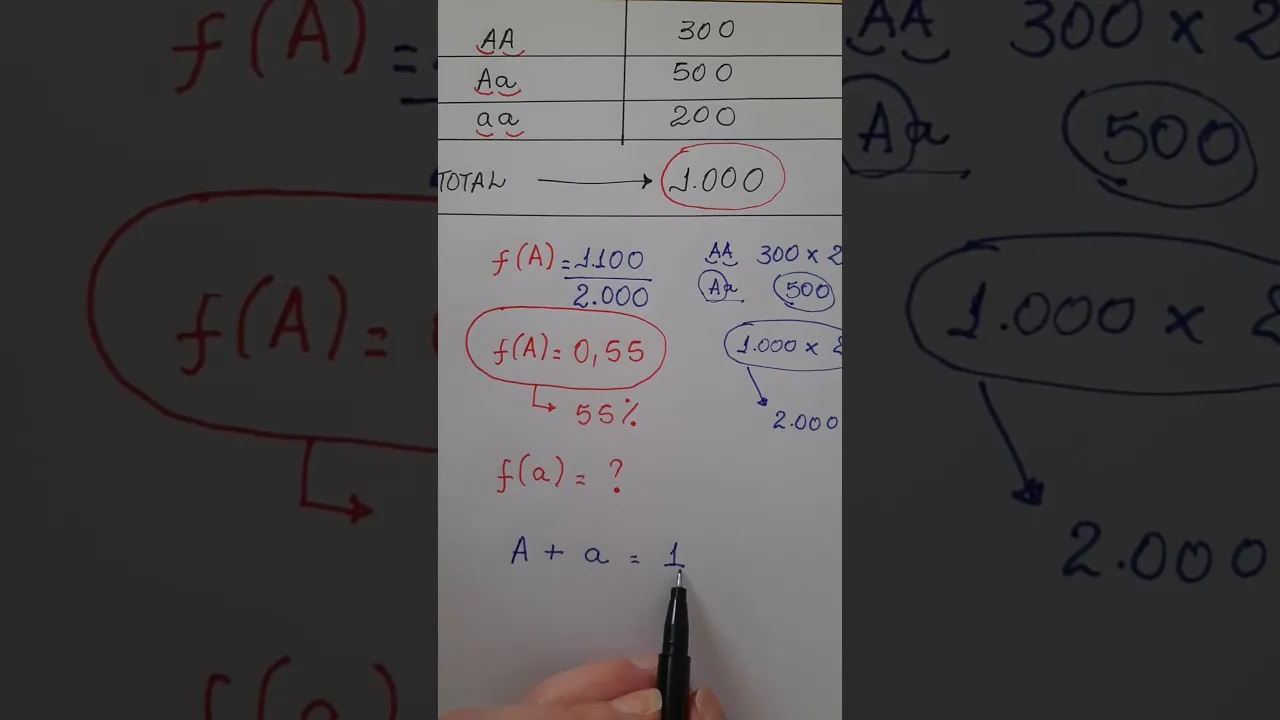 AA 300
Aa 500
aa 200
TOTAL → 1.000
f(A) = 1.100
2.000
f(A) = 0,55
55%
f(a) = ?
A + a = 1
AA 300 x 2
Aa 500
1.000 x 2
2.000